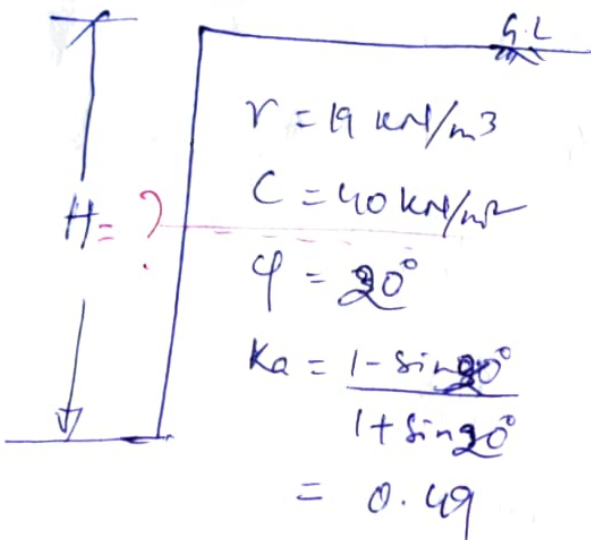 G.L
γ = 19 kN/m3
C = 40 kN/m2
H = ?
φ = 20°
Ka = 1 - sin20°
1 + sin20°
= 0.49